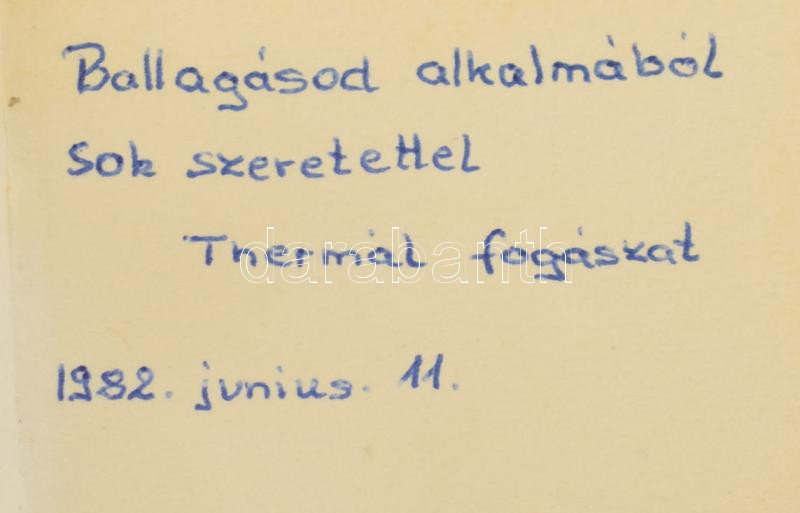 Ballagásod alkalmából
Sok szeretettel
Thermál fogászat
darabanth
1982. junius. 11.